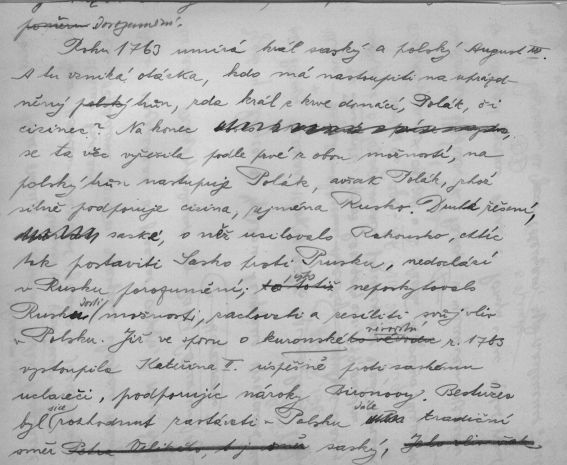 poměru Dorozumění.
Roku 1763 umírá král saský a polský August III.
A tu vzniká otázka, kdo má nastoupiti na upráZd-
něný polský trůn, zda král z krve domácí, Polák, či
cizinec? Na konec
se ta věc vyřešila podle prvé z obou možností, na
polský trůn nastupuje Polák, avšak Polák, jehož
silně podporuje cizina, zejména Rusko. Druhé řešení,
saské, o něž usilovalo Rakousko, chtíc
tak postaviti Sasko proti Prusku, nedochází
v Rusku porozumění; to totiž neposkytovalo
Rusku dosti možnosti, zachovati a zesíliti svůj vliv
v Polsku. Již ve sporu o kuronské r. 1763
vystoupila Kateřina II. úspěšně proti saskému
uchazeči, podporujíc nároky Bironovy. Bestužev
byl sice rozhodnut zastávati v Polsku dále tradiční
směr Petra Velikého, t.j. směr saský,